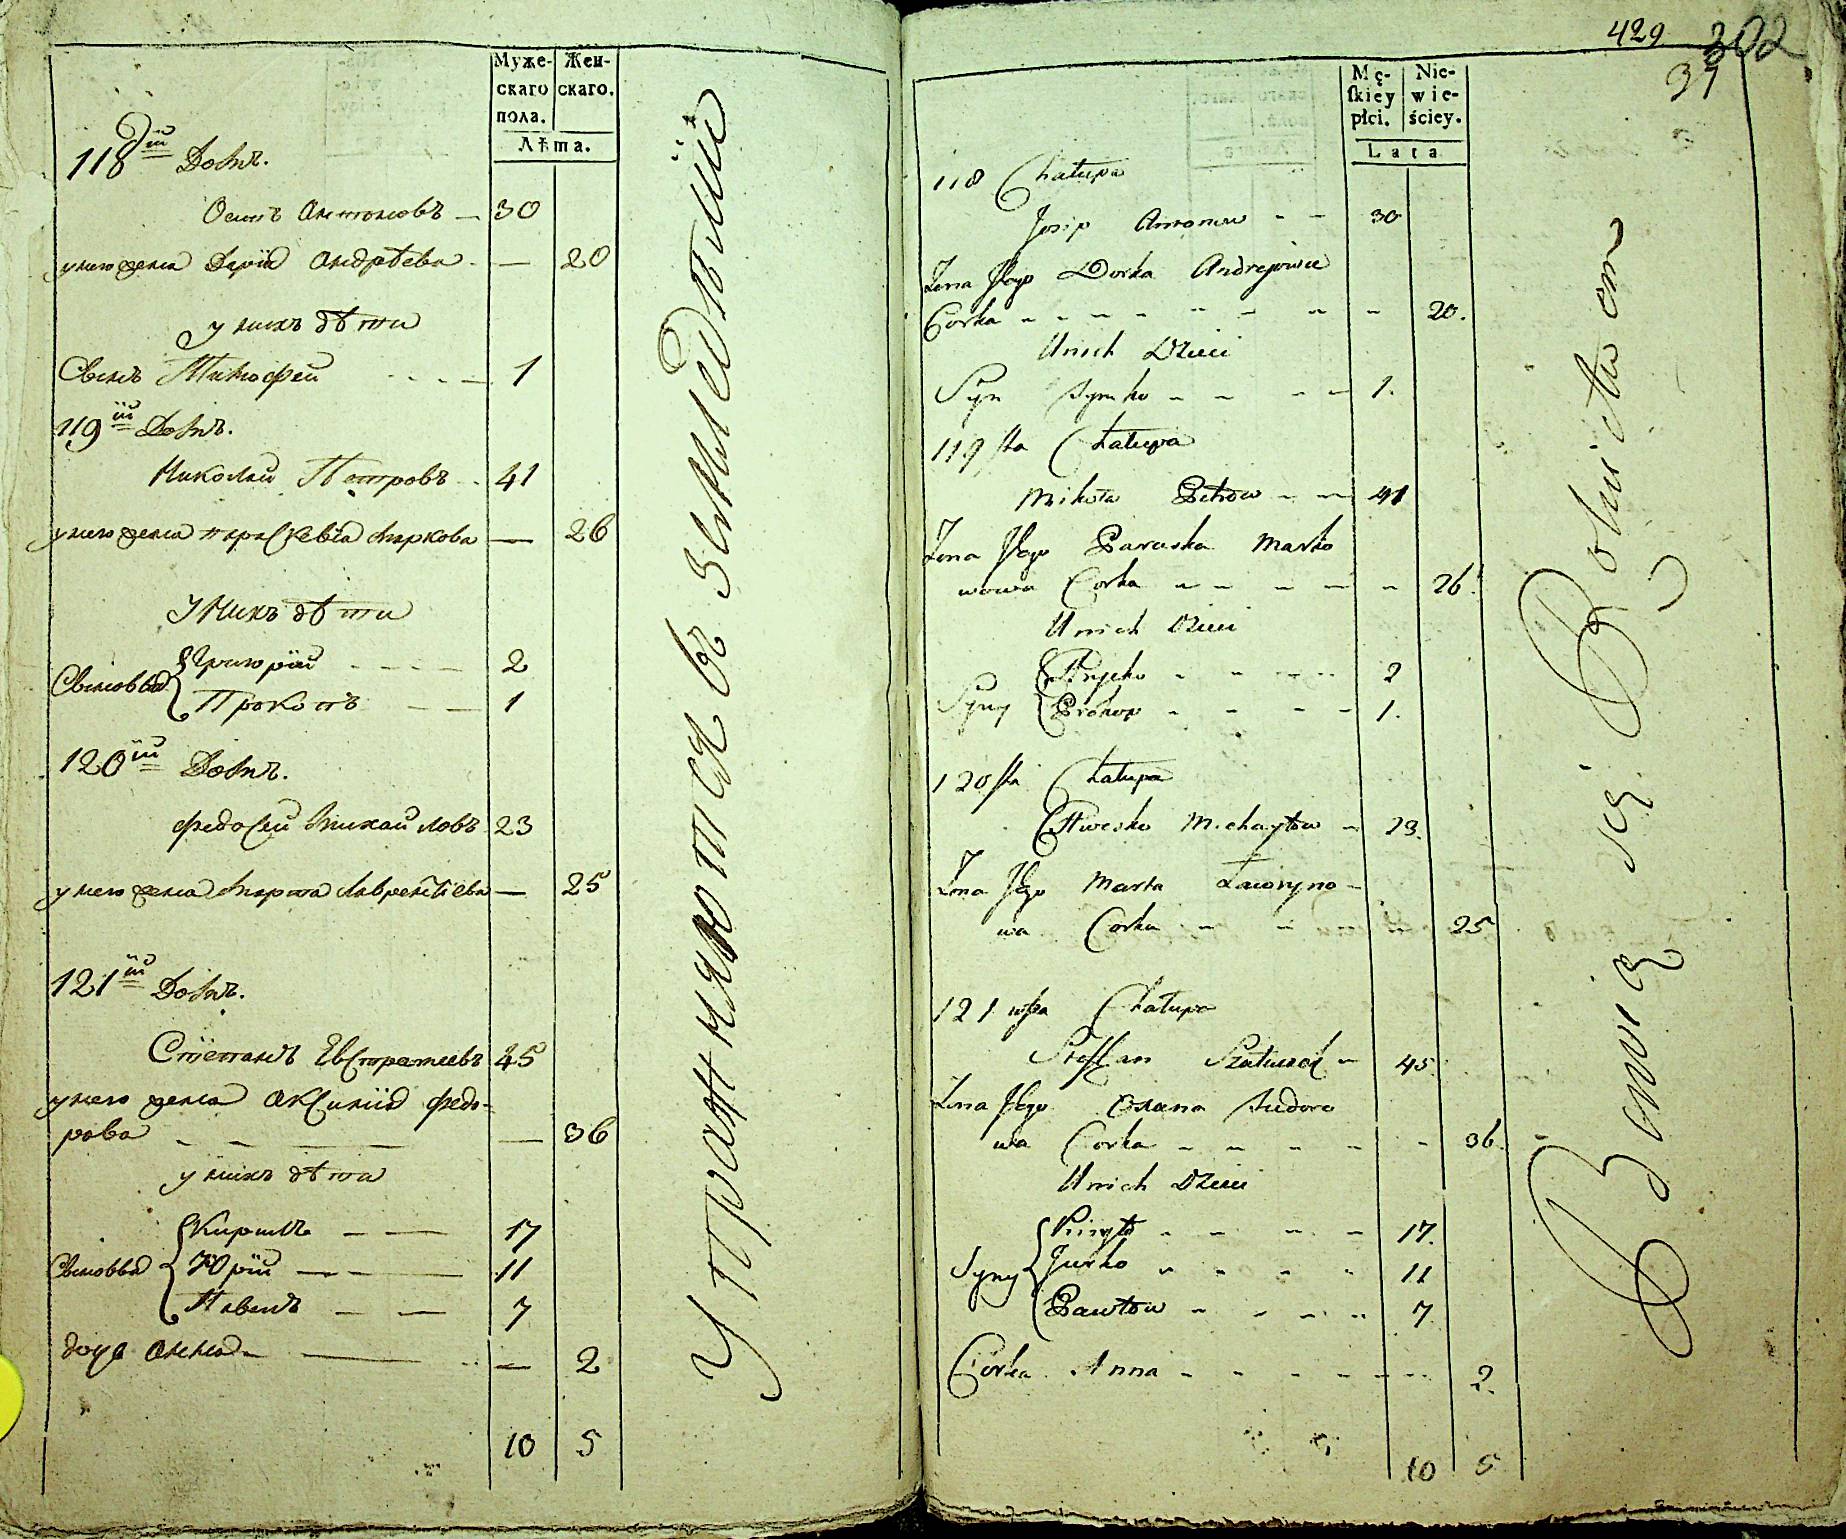 Муже- Жен-
скаго скаго.
пола.
Лѣта.
118й Домъ.
Осипъ Антоновъ — 30
у него жена Дарїя Андрѣева — 20
у нихъ дѣти
Сынъ Тимофей 1
119й Домъ.
Николай Петровъ 41
у него жена Параскевїя Маркова — 26
У Нихъ дѣти
Сыновья Григорїй 2
Прокопъ 1
120й Домъ.
Федосей Михайловъ 23
у него жена Марта Лаврентїева — 25
121й Домъ.
Степанъ Евстратеевъ 45
у него жена Аксинїя Федо-
рова — 36
у нихъ дѣти
Сыновья Кирилъ 17
Юрїй 11
Павелъ 7
дочь Анна — 2
10 5
Упражняются въ земледѣлїи
429 302
37
Mę- Nie-
skiey wie-
płci. ściey.
Lata
118 Chałupa
Josip Antonow 30
Żona Jego Dorka Andrejowa
Corka 20.
Unich Dzieci
Syn Symko 1.
119sta Chałupa
Mikoła Petrow 41
Żona Jego Paraska Marko
wowa Corka 26
Unich Dzieci
Syny Hryćko 2
Prokop 1.
120sta Chałupa
Michayłow 23.
Żona Jego Marta Ławryno
wa Corka 25
121 wsza Chałupa
Steffan 45
Żona Jego Oxana Fiedoro
wa Corka 36.
Unich Dzieci
Syny Kiryło 17.
Jurko 11
Pawłow 7
Corka Anna 2.
10 5
Bawią się Rolnictwem